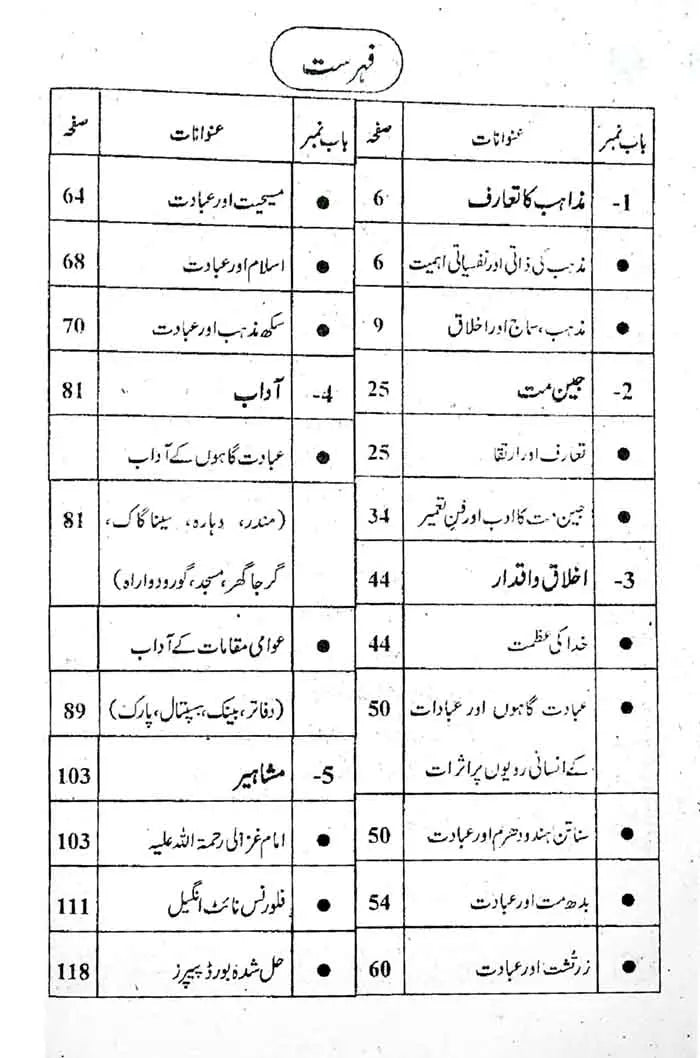 فہرست
باب نمبر عنوانات صفحہ
1- مذاہب کا تعارف 6
● مذہب کی ذاتی اور نفسیاتی اہمیت 6
● مذہب، سماج اور اخلاق 9
2- جین مت 25
● تعارف اور ارتقا 25
● جین مت کا ادب اور فنِ تعمیر 34
3- اخلاق و اقدار 44
● خدا کی عظمت 44
● عبادت گاہوں اور عبادات 50
کے انسانی رویوں پر اثرات
● سناتن ہندو دھرم اور عبادت 50
● بدھ مت اور عبادت 54
● زرتُشت اور عبادت 60
باب نمبر عنوانات صفحہ
● مسیحیت اور عبادت 64
● اسلام اور عبادت 68
● سکھ مذہب اور عبادت 70
4- آداب 81
● عبادت گاہوں کے آداب
(مندر، دہارہ، سیناگاگ، 81
گرجا گھر، مسجد، گورودواراہ)
● عوامی مقامات کے آداب
(دفاتر، بینک، ہسپتال، پارک) 89
5- مشاہیر 103
● امام غزالی رحمۃ اللہ علیہ 103
● فلورنس نائٹ انگیل 111
● حل شدہ بورڈ پیپرز 118